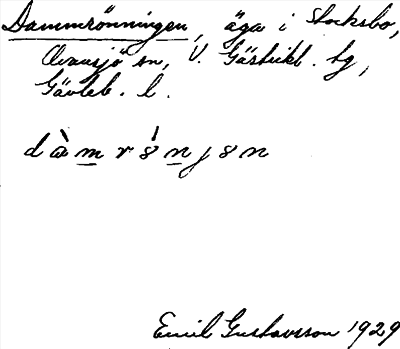 Dammrönningen, äga i Stocksbo,
Ovansjö sn, V. Gästrikl. tg,
Gävleb. l.
Emil Gustavsson 1929